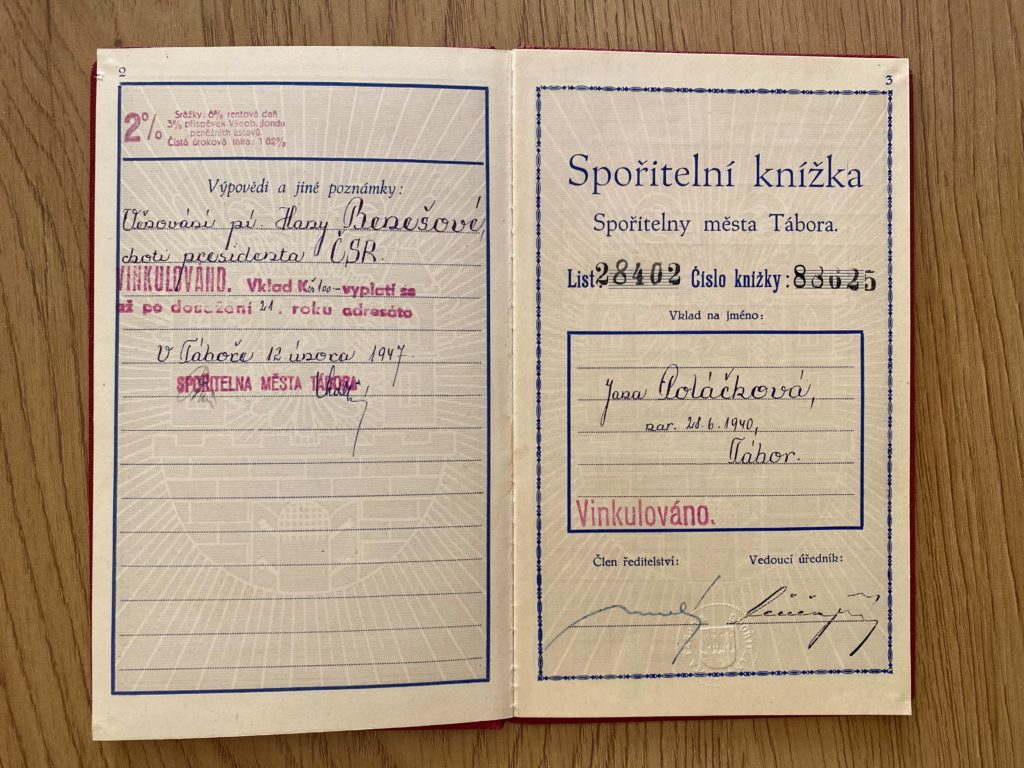 2
2%
Srážky: 6% rentová daň
3% příspěvek Všeob. fondu
peněžních ústavů.
Čistá úroková míra: 1·82%
Výpovědi a jiné poznámky:
Věnování pí. Hany Benešové,
choti presidenta ČSR.
VINKULOVÁNO. Vklad Kčs 100 – vyplatí se
až po dosažení 21. roku adresáto
V Táboře 12 února 1947.
SPOŘITELNA MĚSTA TÁBORA
3
Spořitelní knížka
Spořitelny města Tábora.
List 28402 Číslo knížky: 88625
Vklad na jméno:
Jana Poláčková,
nar. 28.6.1940,
Tábor.
Vinkulováno.
Člen ředitelství: Vedoucí úředník: